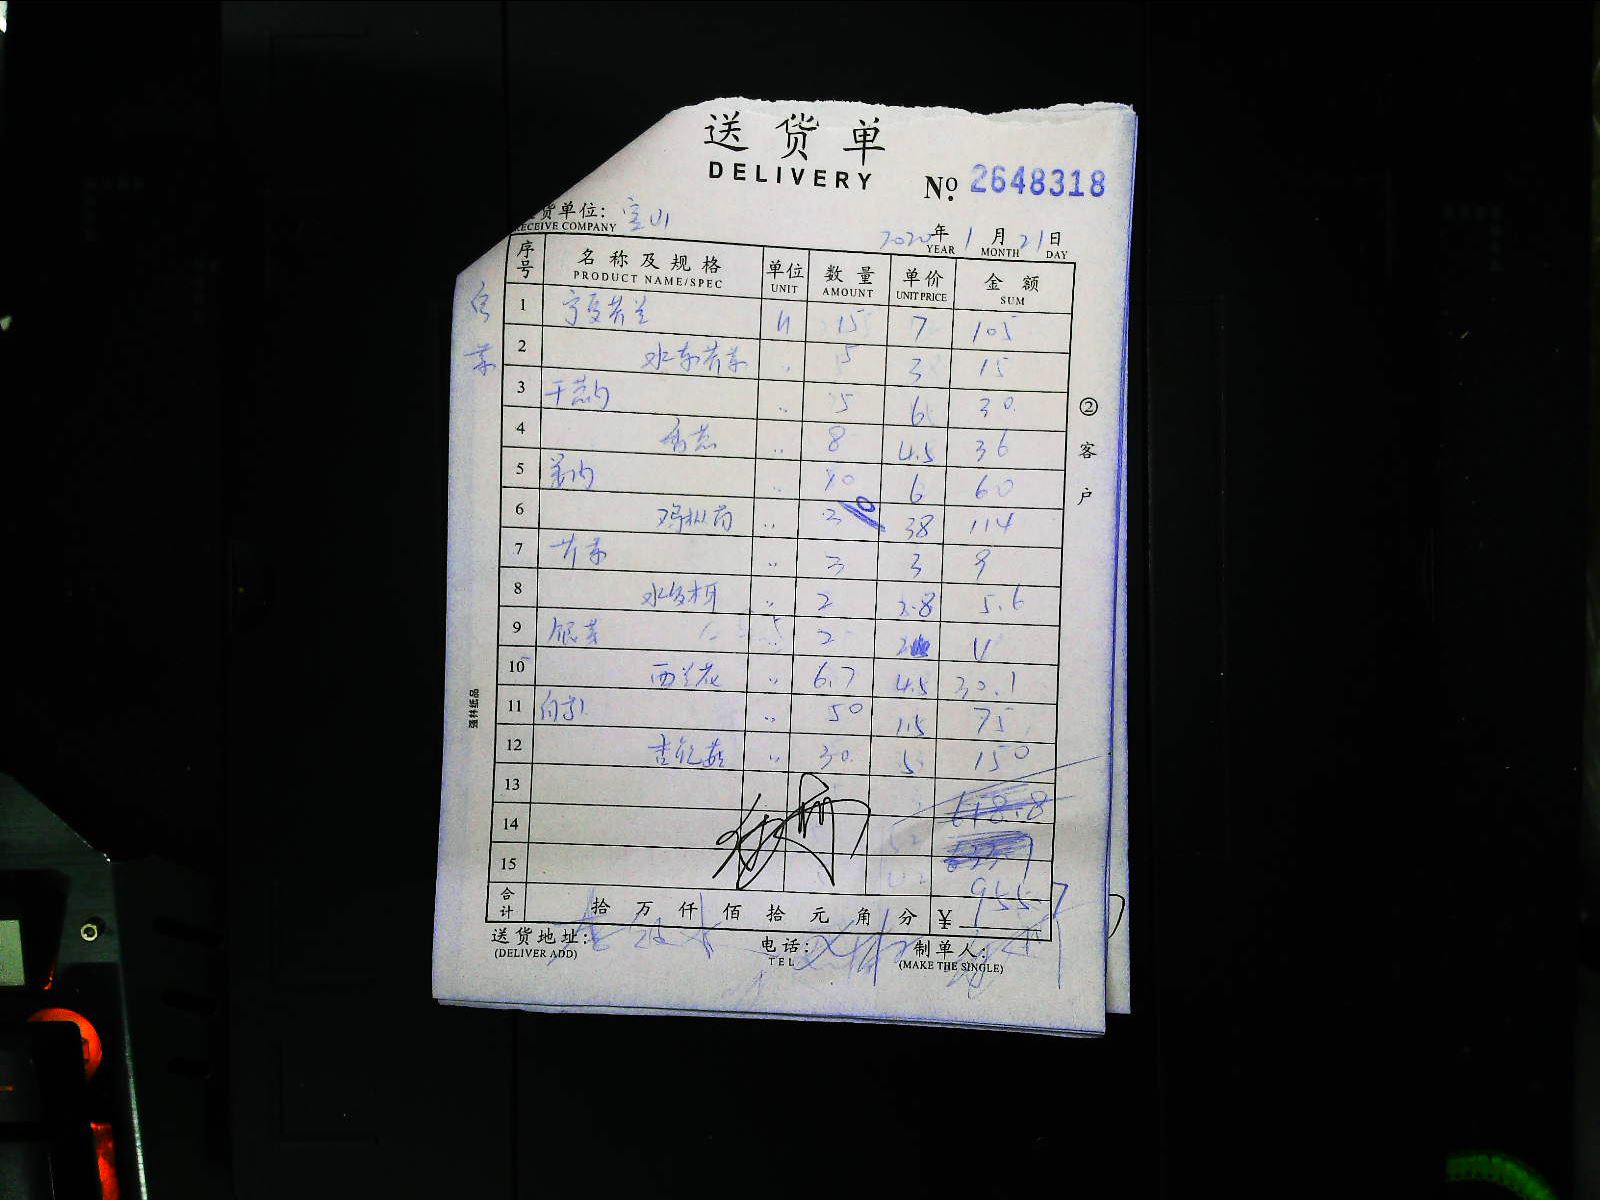 送货单
DELIVERY
No. 2648318
货单位: 宝山
RECEIVE COMPANY
2020年 1月 21日
YEAR MONTH DAY
序号 名称及规格 单位 数量 单价 金额
PRODUCT NAME/SPEC UNIT AMOUNT UNIT PRICE SUM
1 宁夏芥兰 斤 15 7 105
2 水东芥菜 〃 5 3 15
3 干葱肉 〃 5 6 30
4 香葱 〃 8 4.5 36
5 姜肉 〃 10 6 60
6 鸡枞菌 〃 3 10 38 114
7 芥菜 〃 3 3 9
8 水发木耳 〃 2 2.8 5.6
9 银芽 〃 2 2 4
10 西兰花 〃 6.7 4.5 30.1
11 〃 50 1.5 75
12 杏鲍菇 〃 30 5 150
13 618.8
14
15 955
合计 拾 万 仟 佰 拾 元 角 分 ¥
送货地址:
(DELIVER ADD)
电话:
TEL
制单人:
(MAKE THE SINGLE)
②客户
强林纸品